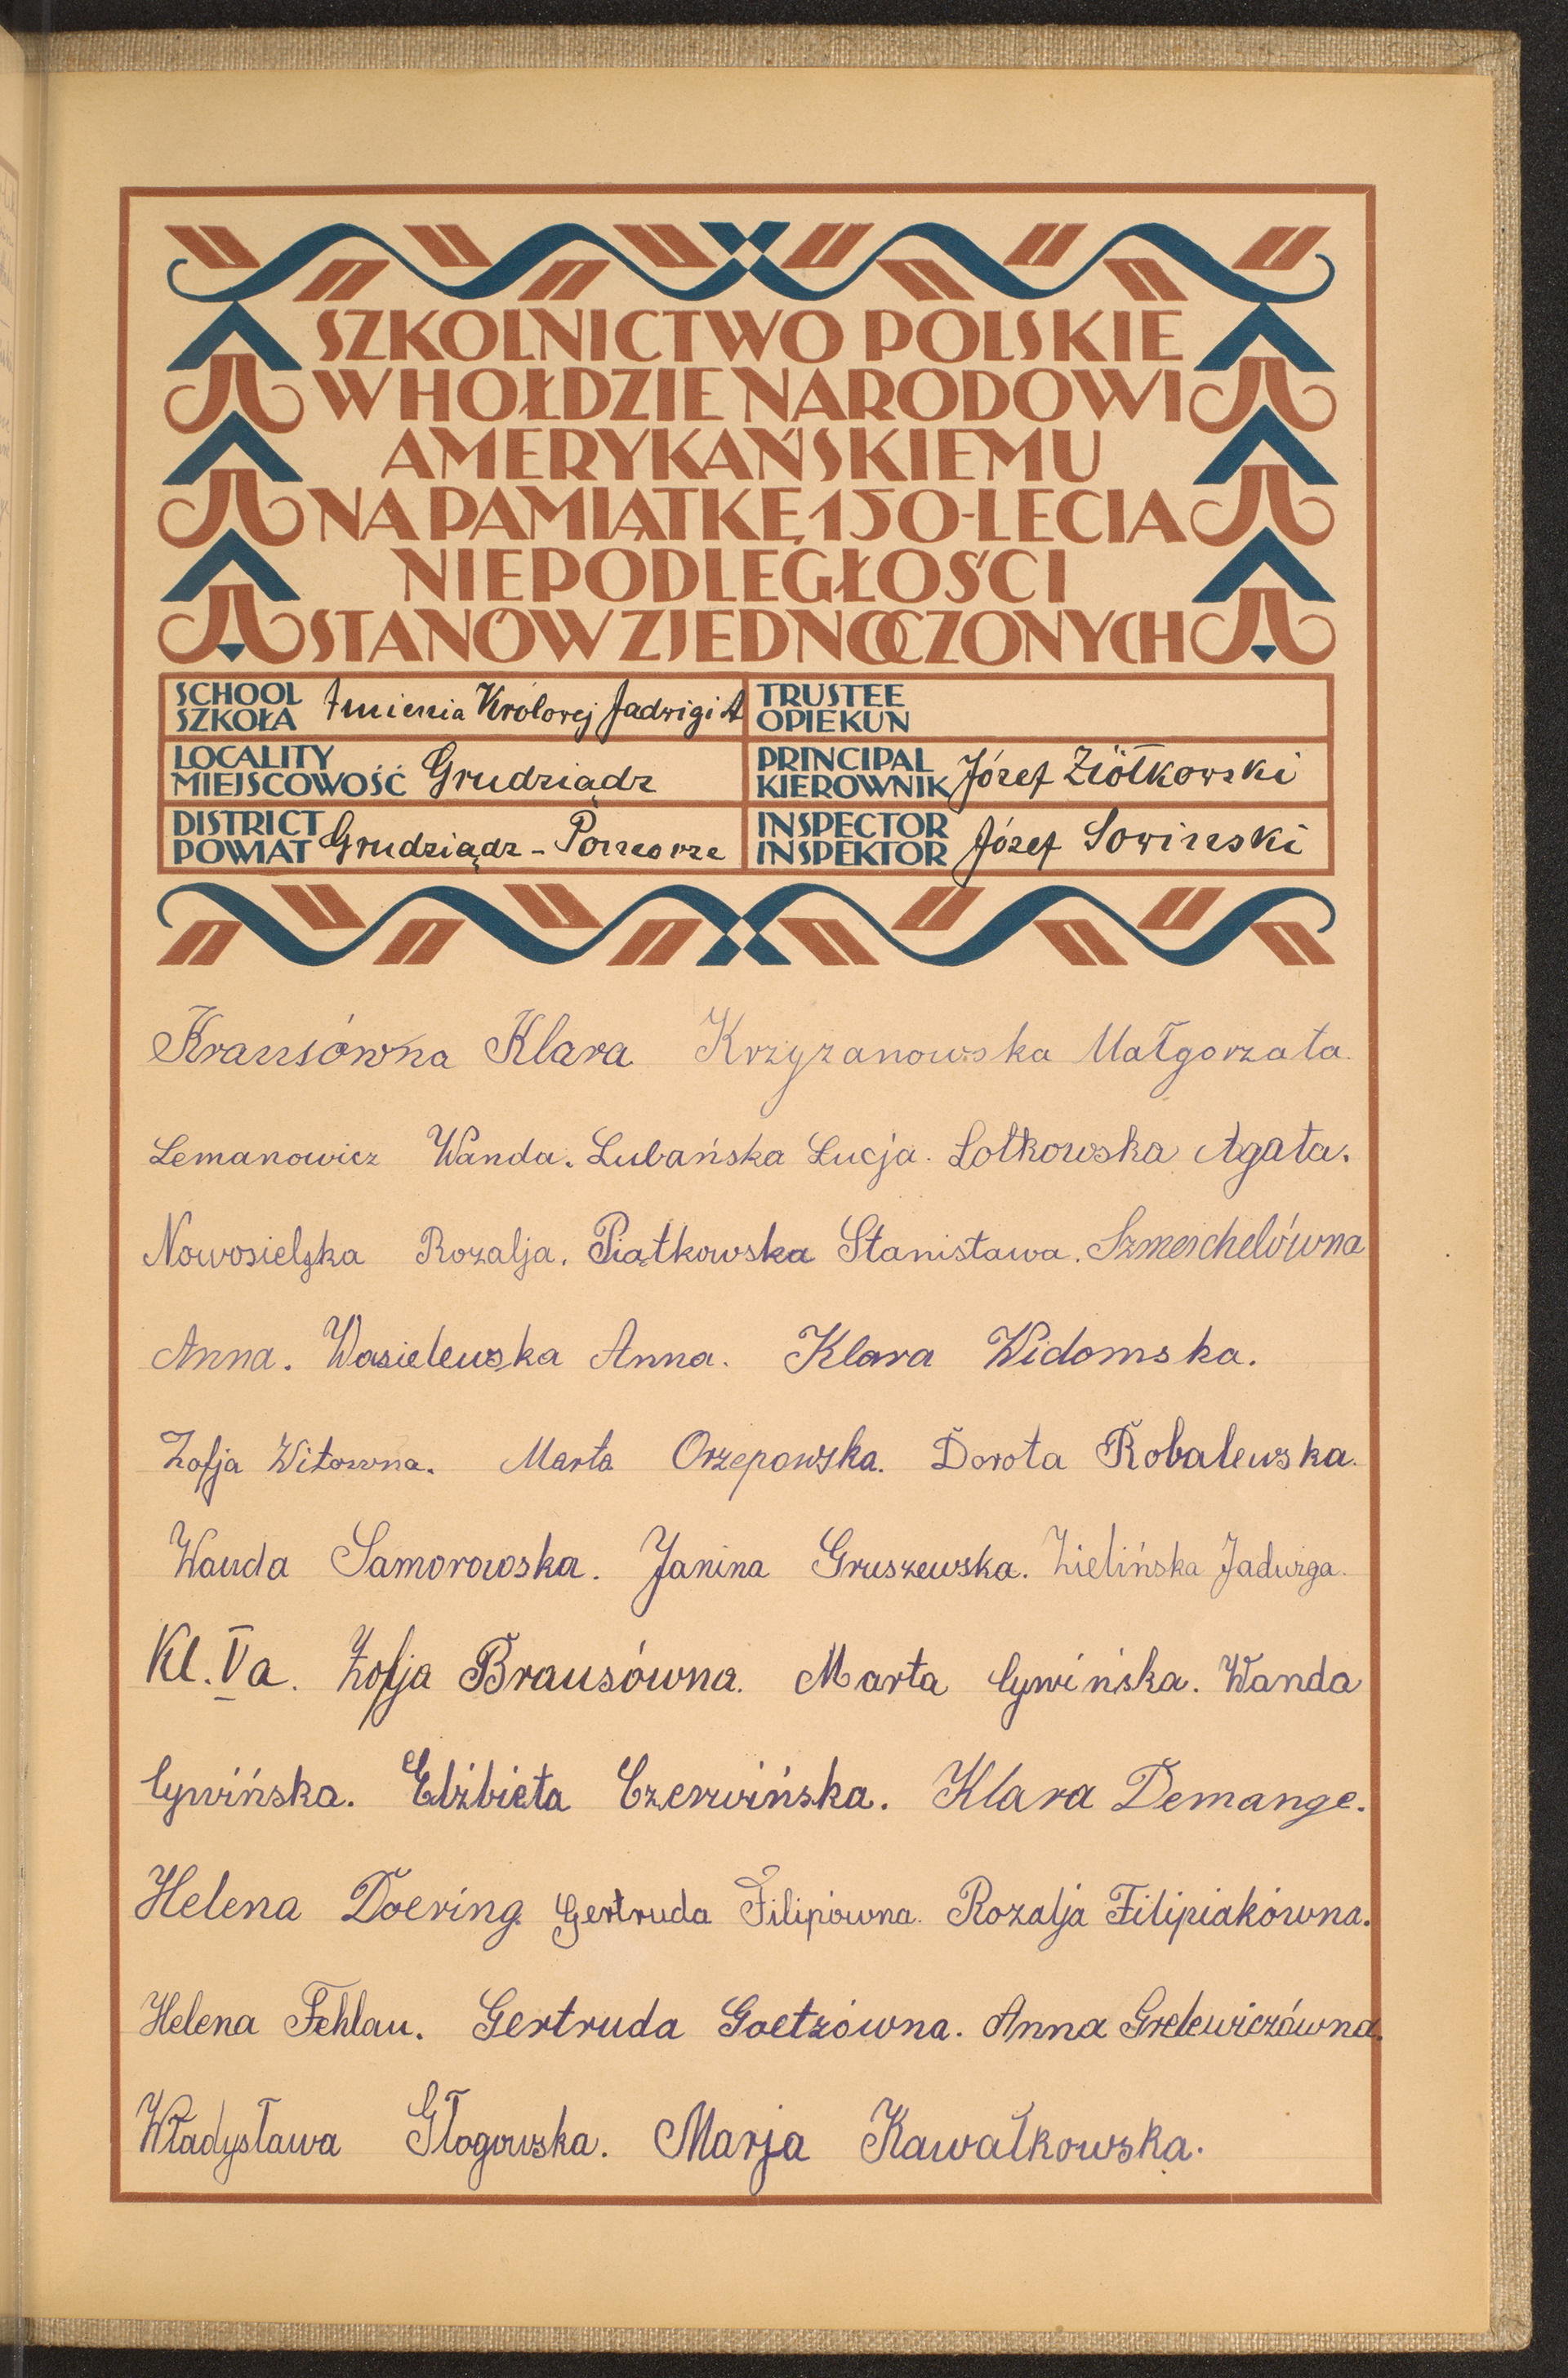 SZKOLNICTWO POLSKIE
W HOŁDZIE NARODOWI
AMERYKAŃSKIEMU
NA PAMIĄTKĘ 150-LECIA
NIEPODLEGŁOŚCI
STANÓW ZJEDNOCZONYCH
SCHOOL
SZKOŁA Imienia Królowej Jadwigi A
TRUSTEE
OPIEKUN
LOCALITY
MIEJSCOWOŚĆ Grudziądz
PRINCIPAL
KIEROWNIK Józef Ziółkowski
DISTRICT
POWIAT Grudziądz - Pomorze
INSPECTOR
INSPEKTOR Józef Sowinski
Krausówna Klara Krzyzanowska Małgorzata.
Lemanowicz Wanda. Lubańska Łucja. Lotkowska Agata.
Nowosielska Rozalja. Piątkowska Stanisława. Szmeichelówna
Anna. Wasielewska Anna. Klara Widomska.
Zofja Witowna. Marta Orzepowska. Dorota Kobalewska.
Wanda Samorowska. Janina Gruszewska. Zielińska Jadwiga.
Kl. Va. Zofja Brausówna. Marta Cywińska. Wanda
Cywińska. Elżbieta Czerwińska. Klara Demange.
Helena Doering. Gertruda Filipówna. Rozalja Filipiakówna.
Helena Fehlau. Gertruda Goetzówna. Anna Grelewiczówna.
Władysława Głogowska. Marja Kawałkowska.